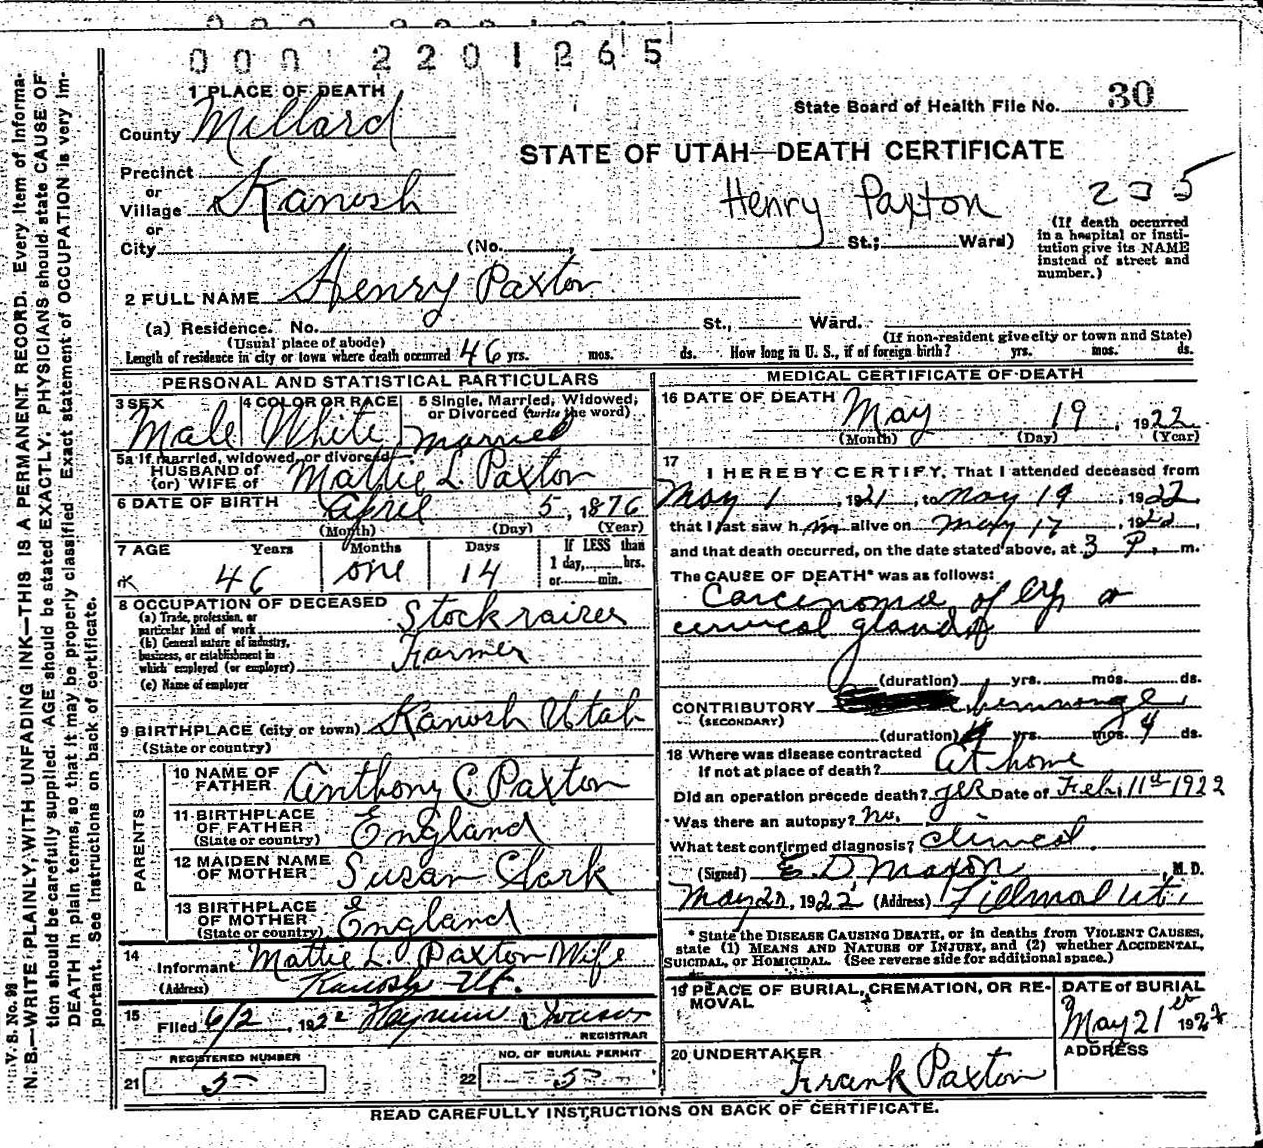 000 2201265
1 PLACE OF DEATH
County Millard
State Board of Health File No. 30
STATE OF UTAH—DEATH CERTIFICATE
Precinct
or
Village Kanosh
or
City (No. , St.; Ward)
Henry Paxton 235
(If death occurred in a hospital or institution give its NAME instead of street and number.)
2 FULL NAME Henry Paxton
(a) Residence. No. St., Ward.
(Usual place of abode) (If non-resident give city or town and State)
Length of residence in city or town where death occurred 46 yrs. mos. ds. How long in U. S., if of foreign birth? yrs. mos. ds.
PERSONAL AND STATISTICAL PARTICULARS
3 SEX 4 COLOR OR RACE 5 Single, Married, Widowed, or Divorced (write the word)
Male White Married
5a If married, widowed, or divorced
HUSBAND of
(or) WIFE of Mattie L. Paxton
6 DATE OF BIRTH April 5, 1876
(Month) (Day) (Year)
7 AGE Years Months Days If LESS than
1 day, hrs.
or min.
46 one 14
8 OCCUPATION OF DECEASED
(a) Trade, profession, or particular kind of work Stockraiser
(b) General nature of industry, business, or establishment in which employed (or employer) Farmer
(c) Name of employer
9 BIRTHPLACE (city or town) Kanosh Utah
(State or country)
PARENTS
10 NAME OF FATHER Anthony C. Paxton
11 BIRTHPLACE OF FATHER England
(State or country)
12 MAIDEN NAME OF MOTHER Susan Clark
13 BIRTHPLACE OF MOTHER England
(State or country)
14 Informant Mattie L. Paxton Wife
(Address) Kanosh Ut.
15 Filed 6/2, 1922
REGISTRAR
REGISTERED NUMBER NO. OF BURIAL PERMIT
21 5 22 5
MEDICAL CERTIFICATE OF DEATH
16 DATE OF DEATH May 19, 1922
(Month) (Day) (Year)
17 I HEREBY CERTIFY, That I attended deceased from
May 1, 1921, to May 19, 1922
that I last saw h im alive on May 17, 1922,
and that death occurred, on the date stated above, at 3 P. m.
The CAUSE OF DEATH* was as follows:
Carcinoma of lip
cervical glands
(duration) yrs. mos. ds.
CONTRIBUTORY
(SECONDARY)
(duration) yrs. mos. 4 ds.
18 Where was disease contracted
If not at place of death? At home
Did an operation precede death? yes Date of Feb. 11st 1922
Was there an autopsy? no.
What test confirmed diagnosis? clinical
(Signed) E. D. Maxon, M. D.
May 20, 1922 (Address) Fillmore Ut.
* State the DISEASE CAUSING DEATH, or in deaths from VIOLENT CAUSES, state (1) MEANS AND NATURE OF INJURY, and (2) whether ACCIDENTAL, SUICIDAL, OR HOMICIDAL. (See reverse side for additional space.)
19 PLACE OF BURIAL, CREMATION, OR REMOVAL
DATE of BURIAL
May 21st 1922
20 UNDERTAKER
Frank Paxton
ADDRESS
READ CAREFULLY INSTRUCTIONS ON BACK OF CERTIFICATE.
V. S. No. 98
N. B.—WRITE PLAINLY, WITH UNFADING INK—THIS IS A PERMANENT RECORD. Every item of information should be carefully supplied. AGE should be stated EXACTLY. PHYSICIANS should state CAUSE OF DEATH in plain terms, so that it may be properly classified. Exact statement of OCCUPATION is very important. See instructions on back of certificate.